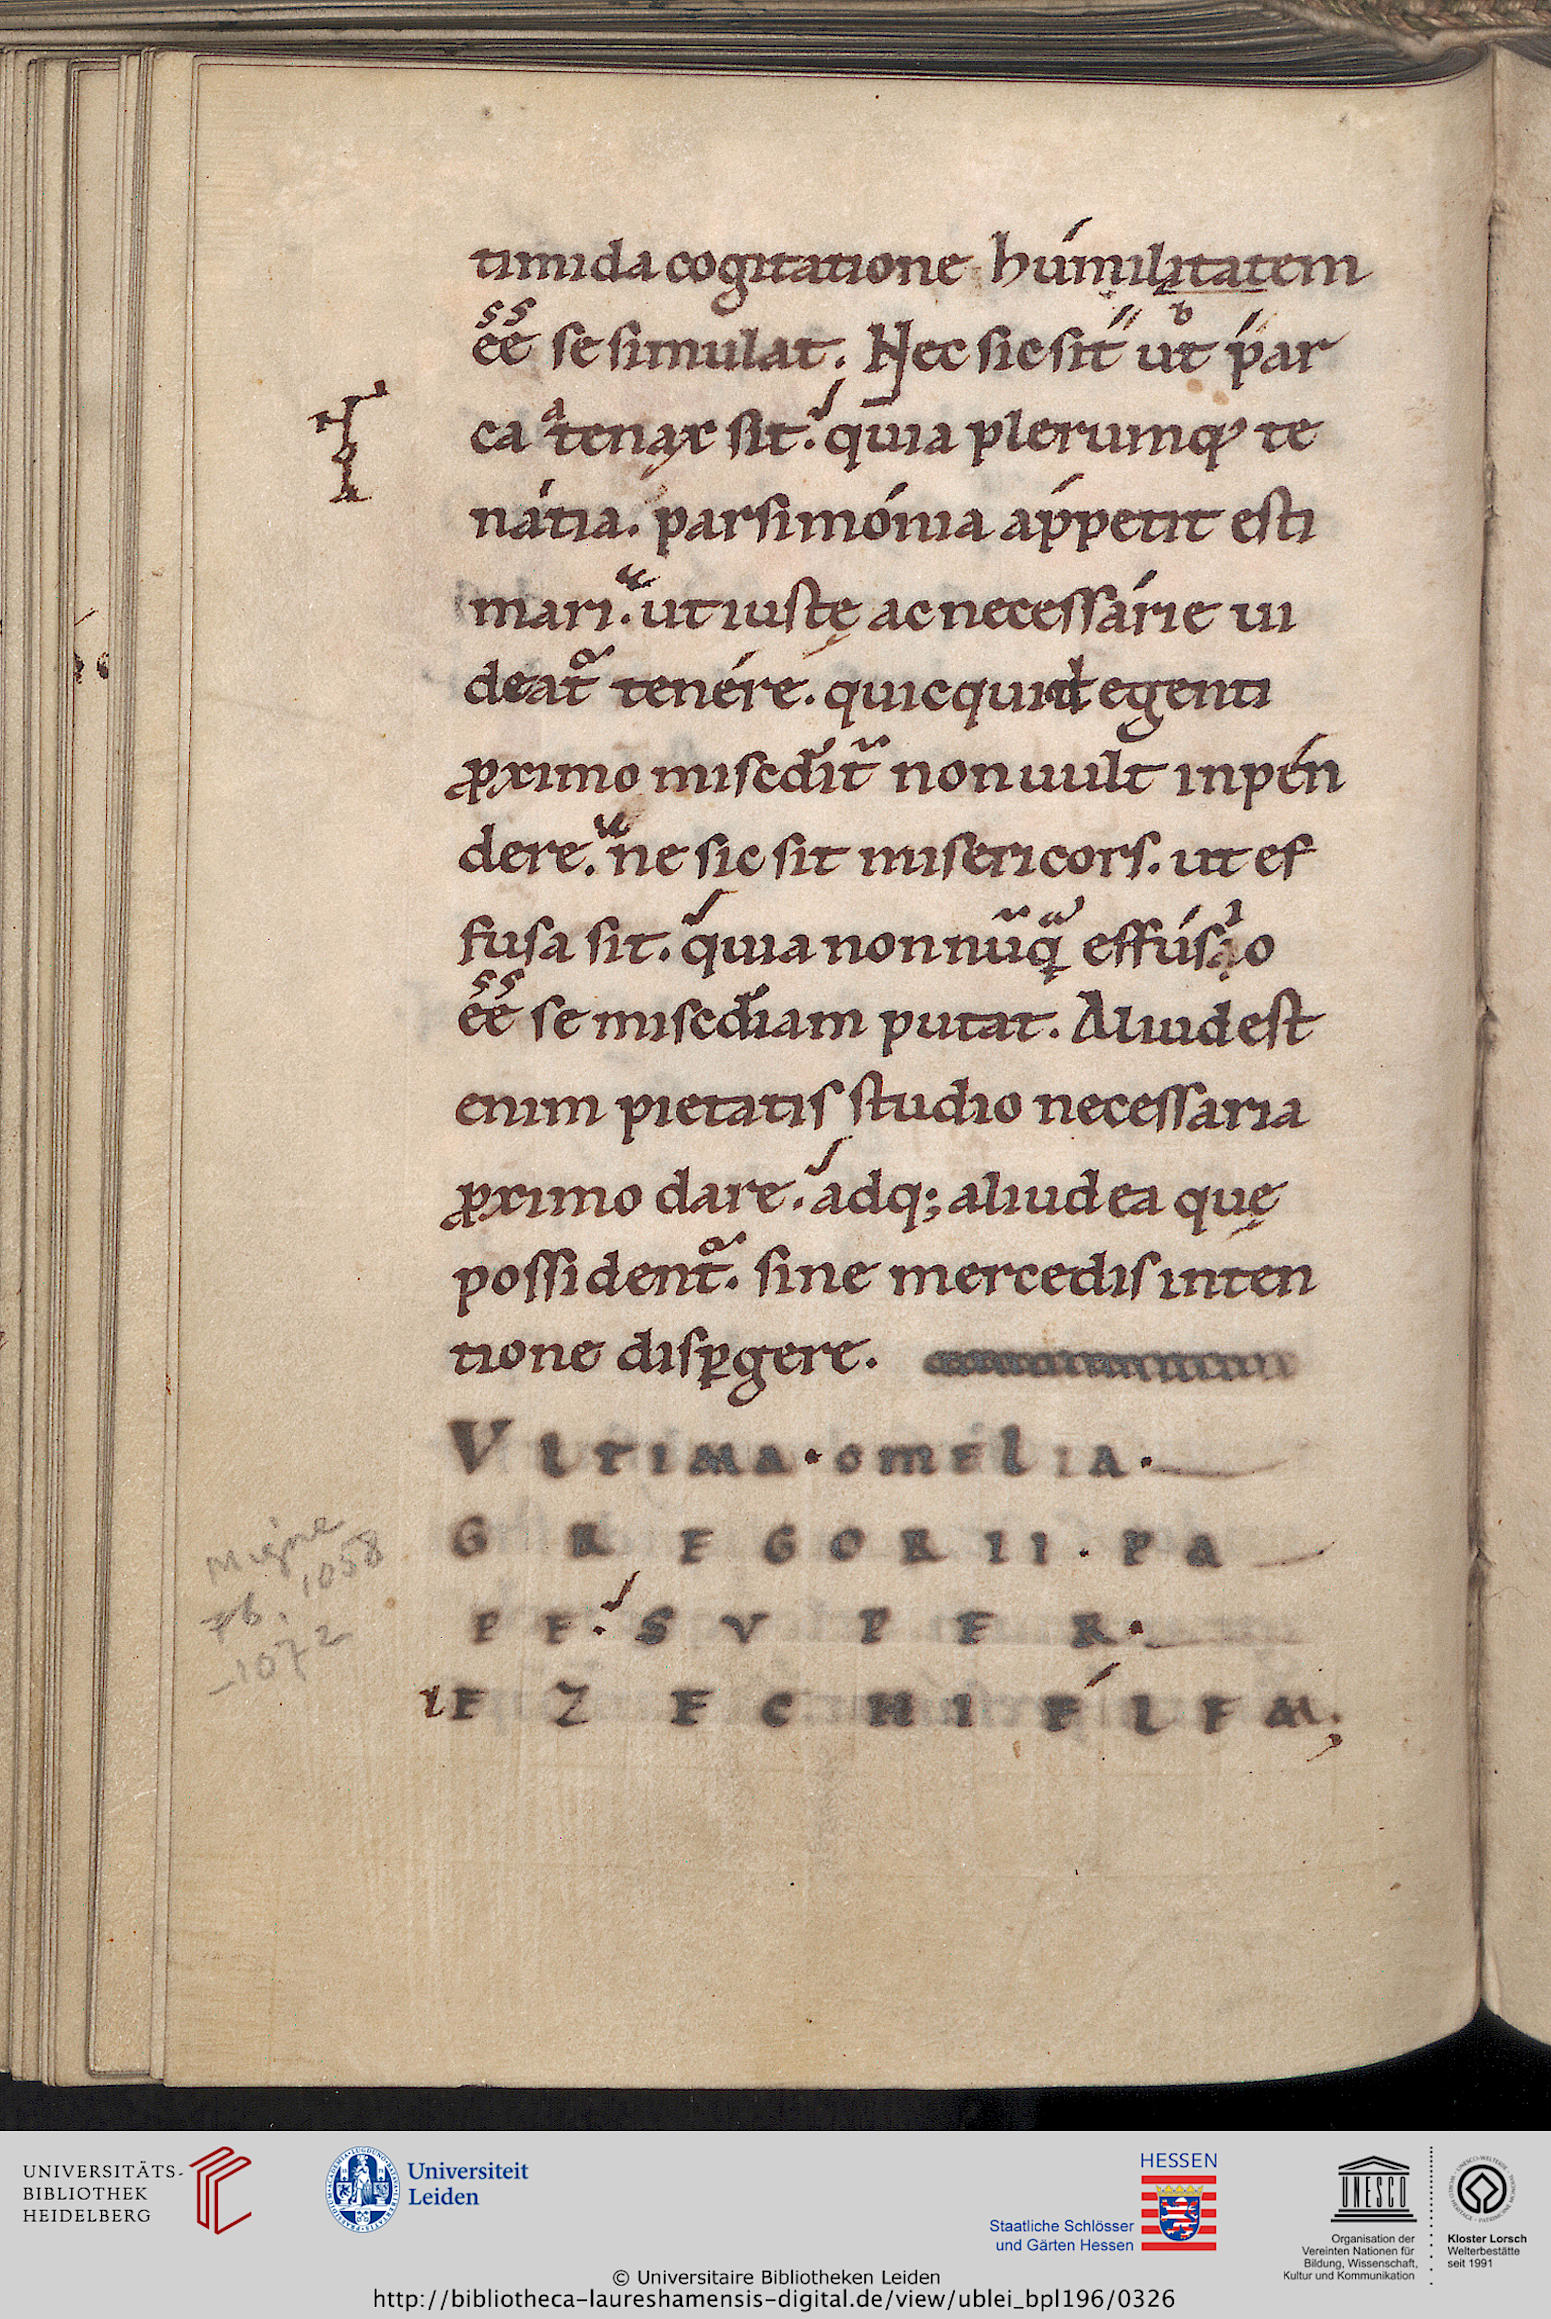 timida cogitatione humilitatem
ee̅ se simulat. Nec sic sit ut par
ca tenax sit. quia plerumq; te
natia. parsimonia appetit esti
mari. ut iuste ac necessarie ui
deat̃ tenere. quicquid egenti
ꝓximo misc̃dit̃ non uult inpen
dere. ne sic sit misericors. ut ef
fusa sit. quia nonnũq̃ effusio
ee̅ se misc̃diam putat. Aliud est
enim pietatis studio necessaria
ꝓximo dare. adq; aliud ea quę
possident̃. sine mercedis inten
tione disꝑgere.
VLTIMA . OMELIA .
GREGORII . PA
PE . SVPER .
IEZECHIELEM ;
Migne
76. 1058
-1072
UNIVERSITÄTS-
BIBLIOTHEK
HEIDELBERG
Universiteit
Leiden
HESSEN
Staatliche Schlösser
und Gärten Hessen
UNESCO
Organisation der
Vereinten Nationen für
Bildung, Wissenschaft,
Kultur und Kommunikation
Kloster Lorsch
Welterbestätte
seit 1991
© Universitaire Bibliotheken Leiden
http://bibliotheca-laureshamensis-digital.de/view/ublei_bpl196/0326